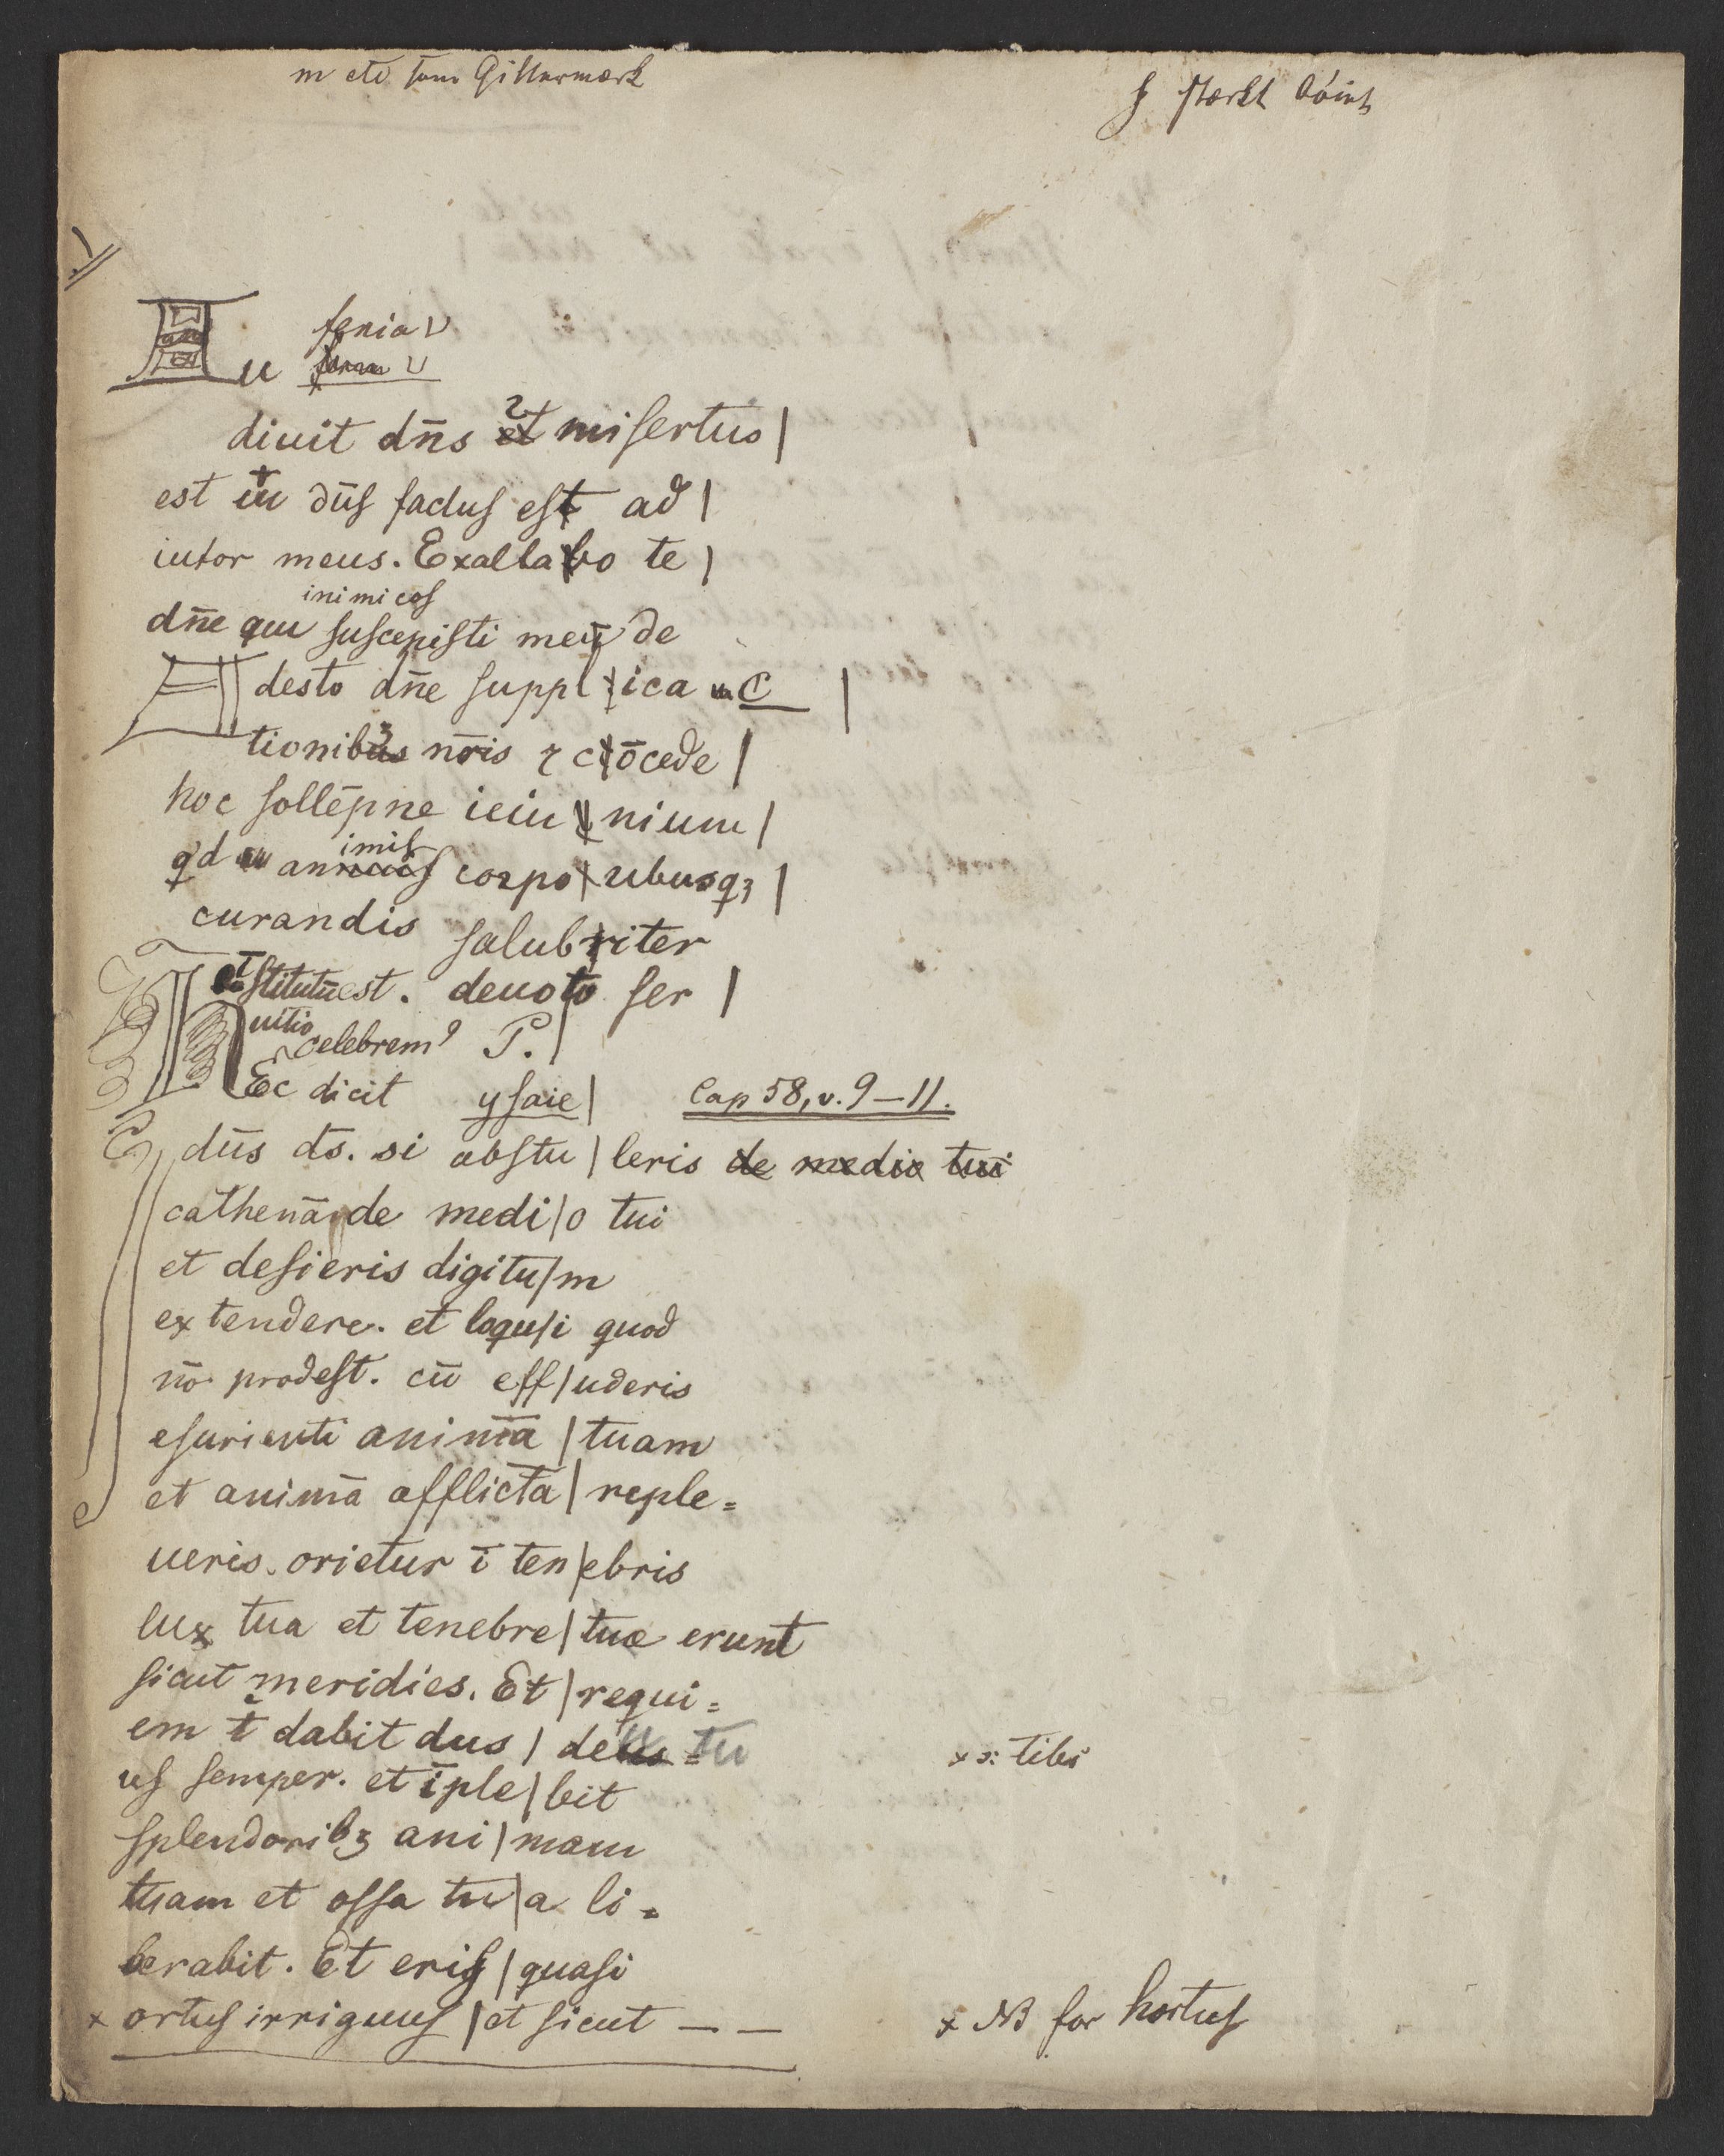 Au feria V
diuit dn̄s et misertus |
est m̄ dn̄s factus est ad |
iutor meus. Exaltabo te |
inimicos
dn̄e qm̄ suscepisti me de
Adesto dn̄e suppl|ica C |
tionibꝫ nr̄is ⁊ c|ōcede |
hoc sollēpne ieiu|nium |
qd animis corpo|ribusqꝫ |
curandis salub|riter
īstitutū est. deuoto ser |
uitio
celebremꝰ P. |
HEc dicit ysaie | Cap 58, v. 9–11.
dn̄s ds̄. si abstu | leris de medio tui
cathenā de medi|o tui
et desieris digitu|m
extendere. et loqu|i quod
nō prodest. cū eff|uderis
esurienti animā | tuam
et animā afflictā | reple=
ueris. orietur ī ten|ebris
lux tua et tenebre | tue erunt
sicut meridies. Et | requi=
em t̄ dabit dns | deus tu
us semper. et īple|bit
x ɔ: tibi
splendoribꝫ ani|mam
tuam et ossa tu|a li=
berabit. Et eris | quasi
x ortus irriguus | et sicut — —
x NB for hortus